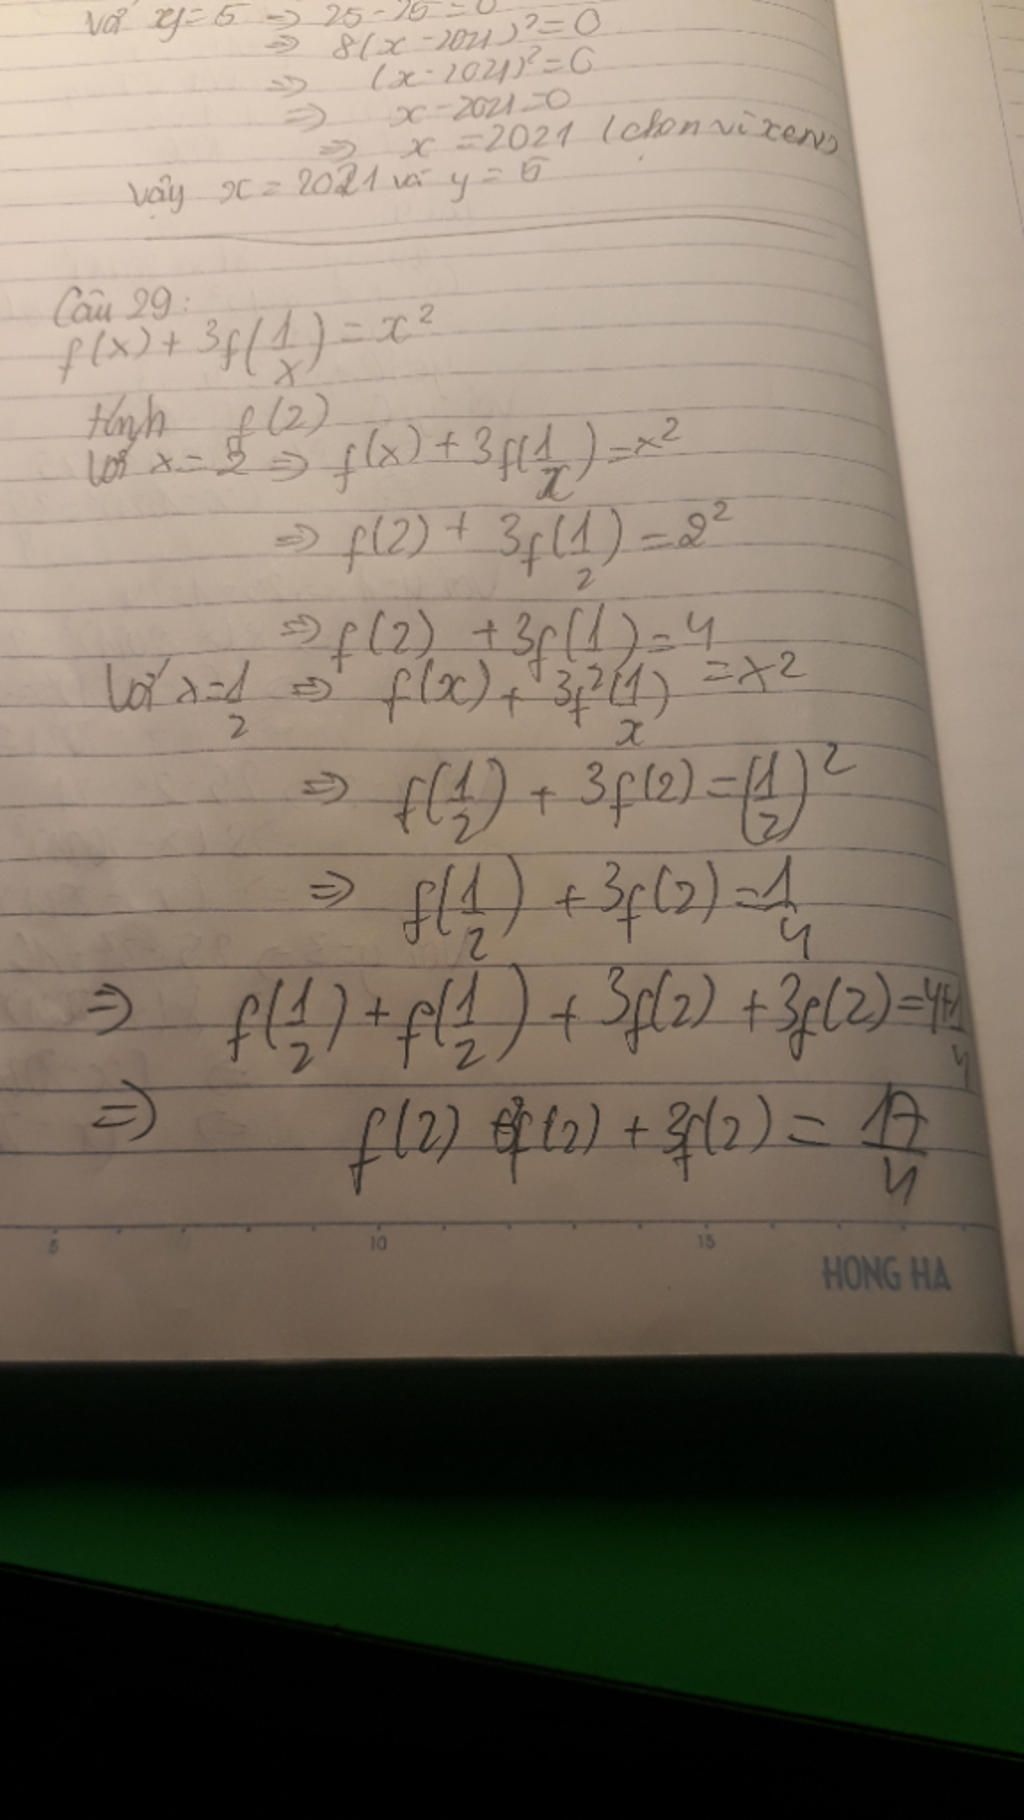 Với y = 5 => 25 - 25 = 0
=> 8(x - 2021)² = 0
=> (x - 2021)² = 0
=> x - 2021 = 0
=> x = 2021 (chọn vì x∈N)
Vậy x = 2021 và y = 5
Câu 29:
f(x) + 3f(1/x) = x²
tính f(2)
Với x = 2 => f(x) + 3f(1/x) = x²
=> f(2) + 3f(1/2) = 2²
=> f(2) + 3f(1/2) = 4
Với x = 1/2 => f(x) + 3f(1/x) = x²
=> f(1/2) + 3f(2) = (1/2)²
=> f(1/2) + 3f(2) = 1/4
=> f(1/2) + f(1/2) + 3f(2) + 3f(2) = 4+1/4
=> f(2) f(2) + 3f(2) = 17/4
5 10 15
HONG HA